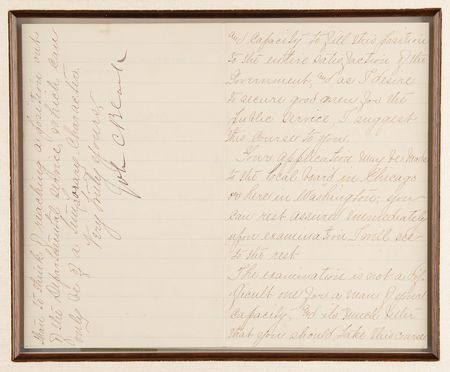 and capacity to fill this position
to the entire satisfaction of the
Government, and as I desire
to secure good men for the
Public Service, I suggest
this course to you.
Your application may be made
to the local board in Chicago
or here in Washington; you
can rest assured immediately
upon examination I will see
to the rest.
The examination is not a dif-
ficult one for a man of your
capacity, and it is much better
that you should take this course
than to think of reaching a position out
of the Departmental service, which can
only be of a temporary character.
Very truly yours,
John C Black